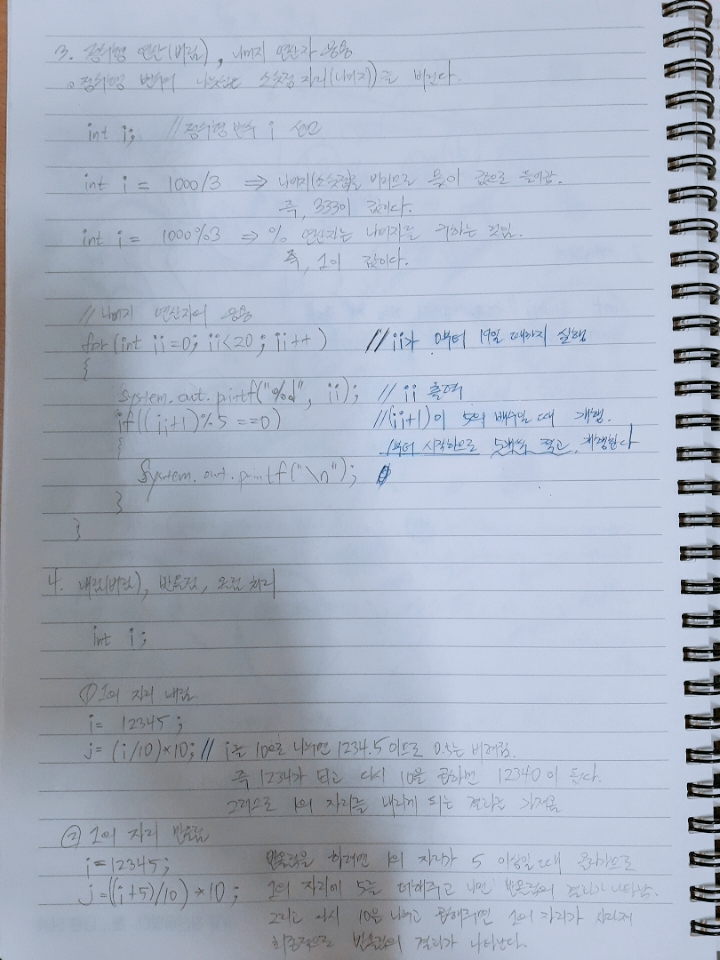 3. 정수형 연산(버림), 나머지 연산자 응용
○ 정수형 변수의 나눗셈은 소숫점 자리(나머지)를 버린다.
int i; // 정수형 변수 i 선언
int i = 1000/3 ⇒ 나머지(소숫점)를 버리므로 몫이 값으로 들어감.
즉, 333이 값이다.
int i = 1000%3 ⇒ % 연산자는 나머지를 구하는 것임.
즉, 1이 값이다.
// 나머지 연산자의 응용
for(int ii=0; ii<20; ii++) // ii가 0부터 19일 때까지 실행
{
System.out.printf("%d", ii); // ii 출력
if((ii+1)%5 ==0) //(ii+1)이 5의 배수일 때 개행.
{ 1부터 시작하므로 5개씩 찍고, 개행한다
System.out.printf("\n");
}
}
4. 내림(버림), 반올림, 오림 처리
int i;
① 1의 자리 내림
i= 12345;
j= (i/10)*10; // i를 10으로 나누면 1234.5 이므로 0.5는 버려짐.
즉 1234가 되고 다시 10을 곱하면 12340이 된다.
그러므로 1의 자리를 내리게 되는 결과를 가져옴
② 1의 자리 반올림
i=12345; 반올림을 하려면 1의 자리가 5 이상일 때 올라가므로
j=((i+5)/10)*10; 1의 자리에 5를 더해주고 나면 반올림의 결과가 나타남.
그리고 다시 10을 나누고 곱해주면 1의 자리가 사라져
최종적으로 반올림의 결과가 나타난다.